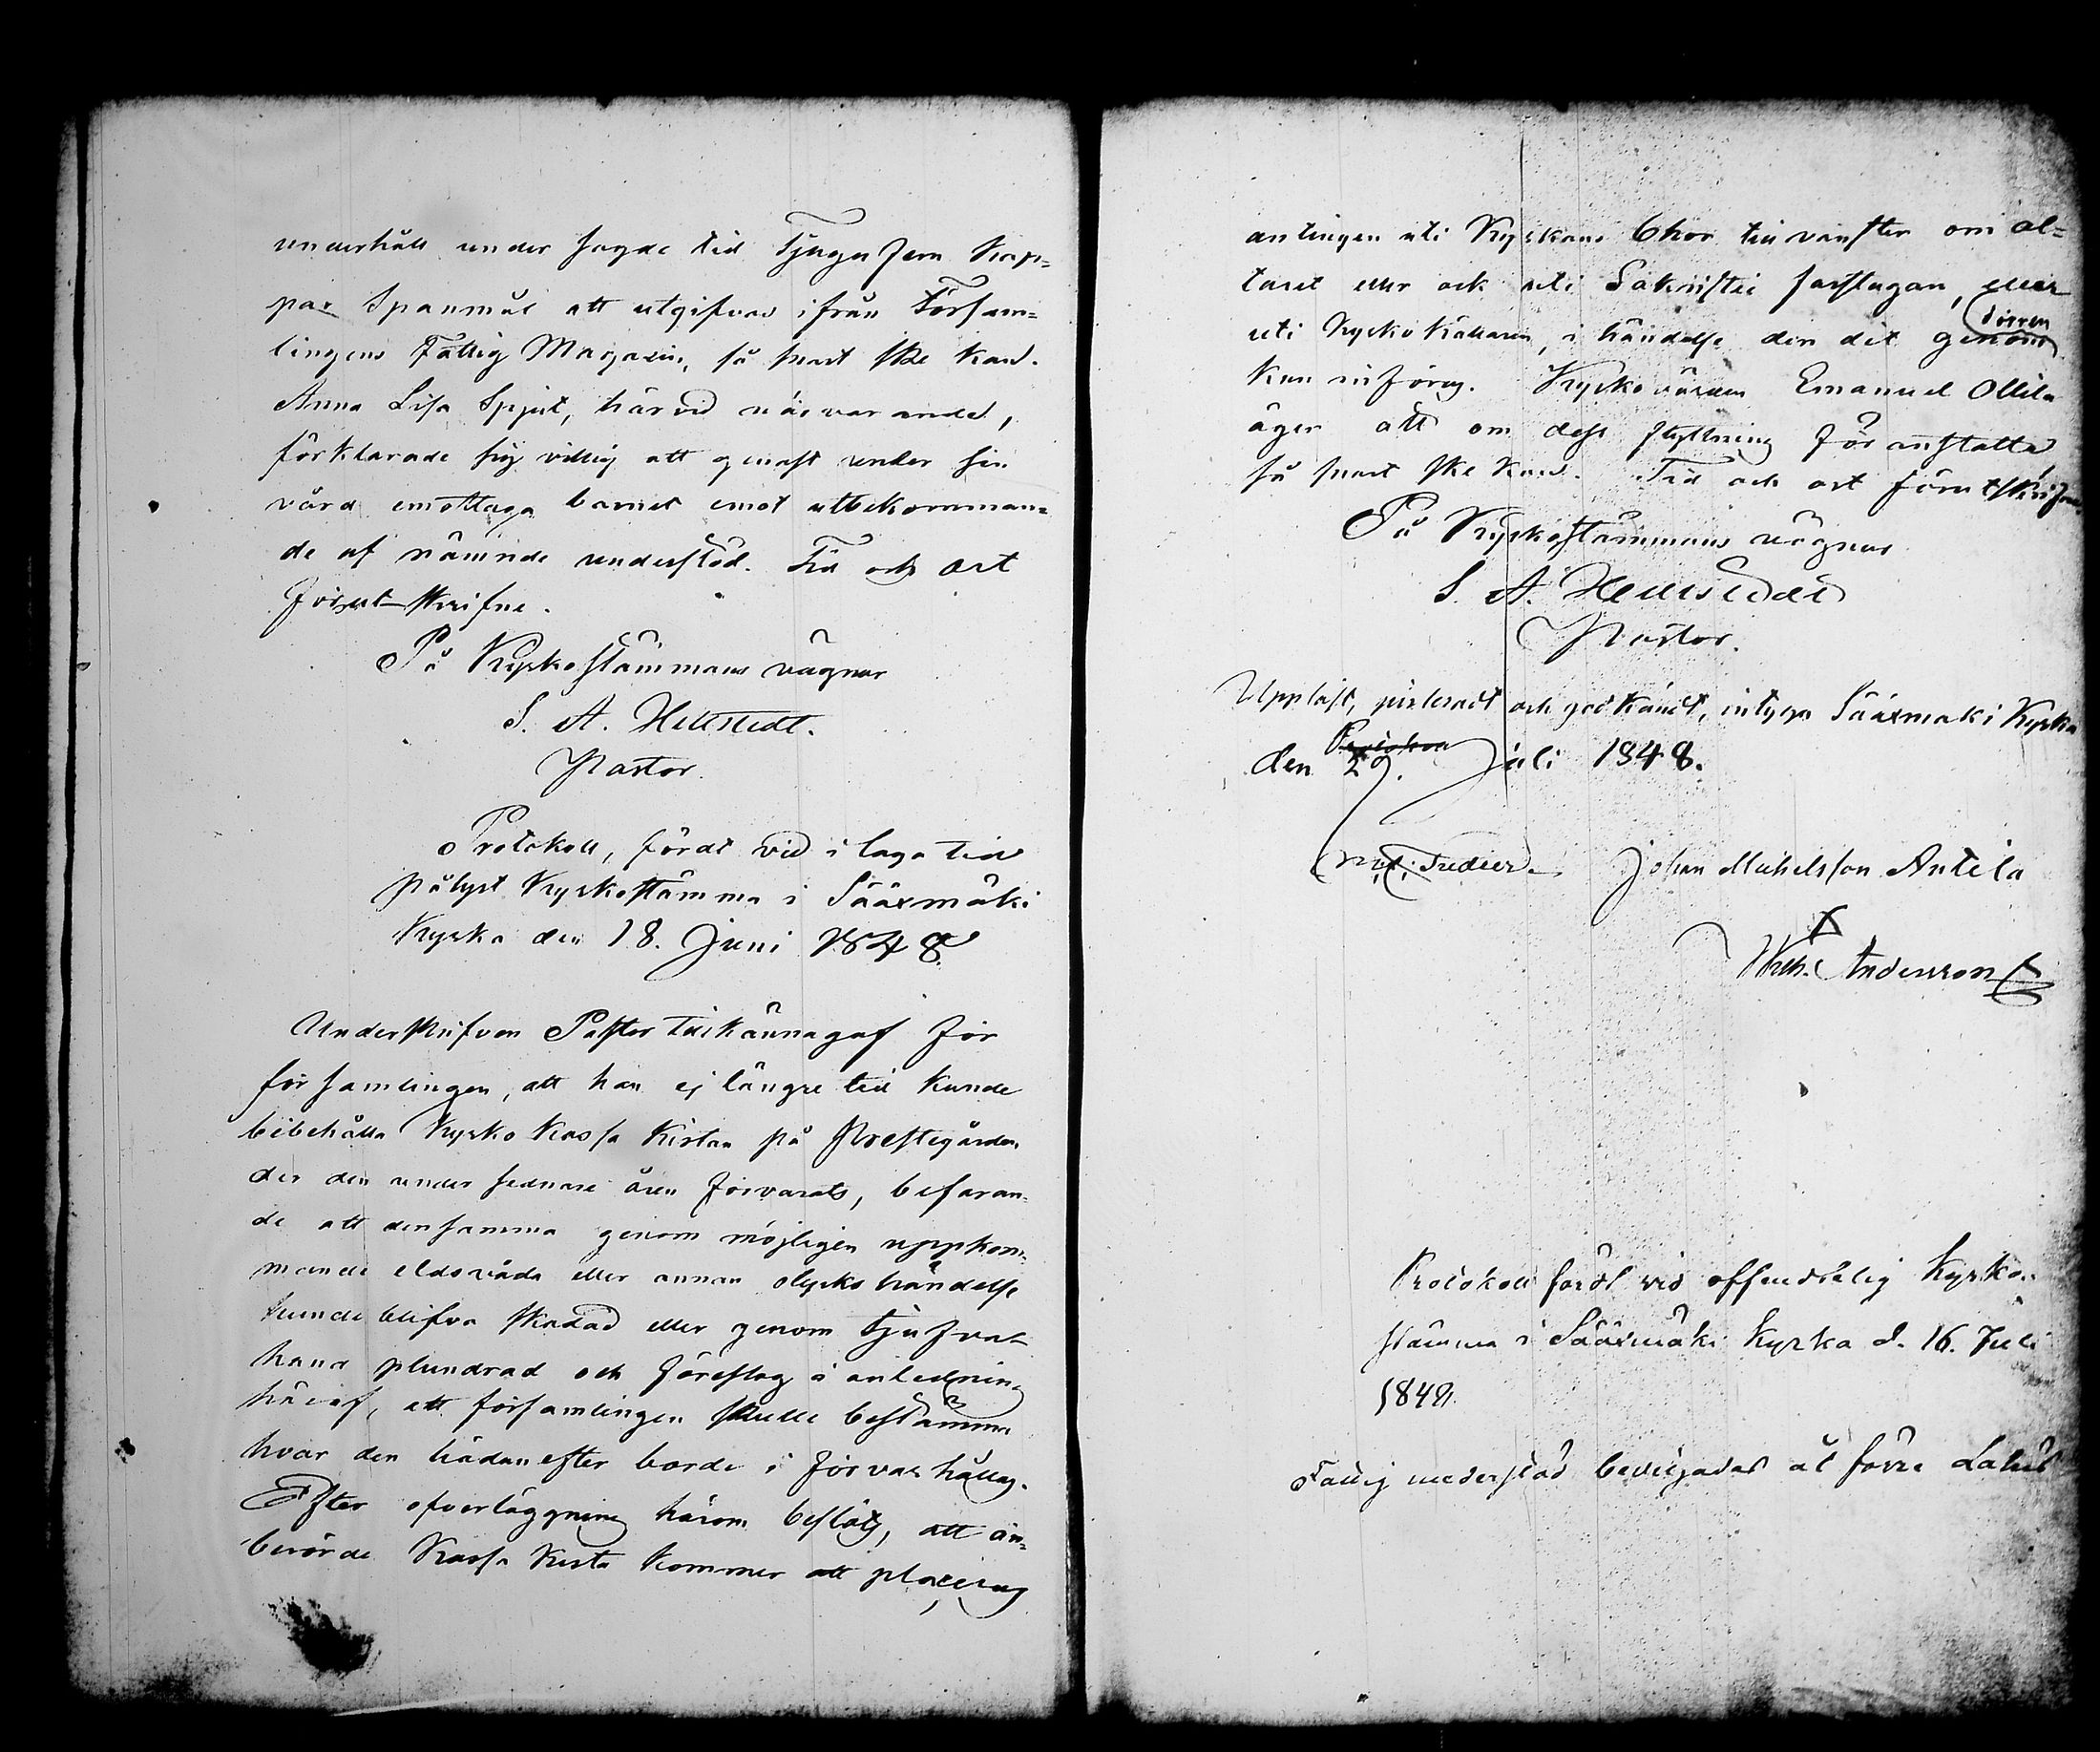 underhåll under sagde tid Tjugu fem Kap=
par Spanmål att utgifvas ifrån Försam=
lingens Fattig Magazin, så snart ske kan.
Anna Lisa Spjut, härvid närvarande,
förklarade sig villig att genast under sin
vård emottaga barnet emot utbekomman=
de af nämnde understöd. Tid och ort
förutskrifne.
På Kyrkostämmans vägnar
S. A. Hellstedt.
Pastor.
Protokoll, fördt vid i laga tid
pålyst Kyrkostämma i Sääxmäki
Kyrka den 18. Juni 1848
Underskrifven Pastor tillkännagaf för
församlingen, att han ej längre tid kunde
bibehålla Kyrko Kassa Kistan på Prestegården
der den under sednare åren förvarats, befaran=
de att densamma genom möjligen uppkom=
mande eldsvåda eller annan olyckshändelse
kunde blifva skadad eller genom tjufva=
hand plundrad och föreslog i anledning
häraf, att församlingen skulle bestämma
hvar den hädanefter borde i förvar hållas.
Efter öfverläggning härom beslöts, att än=
berörde Kassa Kista kommer att placeras
antingen uti Kyrkans Chor till vänster om al=
taret eller ock uti Sakristie farstugan, eller
uti Kyrko källaren, i händelse den dit genom dörren
kan införas. Kyrkovärden Emanuel Ollila
äger att om dess flyttning föranstalta
så snart ske kan. Tid och ort förutskrifne
På Kyrkostämmans vägnar
S. A. Hellstedt
Pastor.
Uppläst, justeradt och godkändt, intyga Sääxmäki Kyrka
den 29. Juli 1848.
Johan Michelsson Antila
Wilh. Andersson
Protokoll fördt vid offendtelig Kyrko=
stämma i Sääxmäki Kyrka d. 16. Juli
1848.
Fattig understöd beviljades åt förre